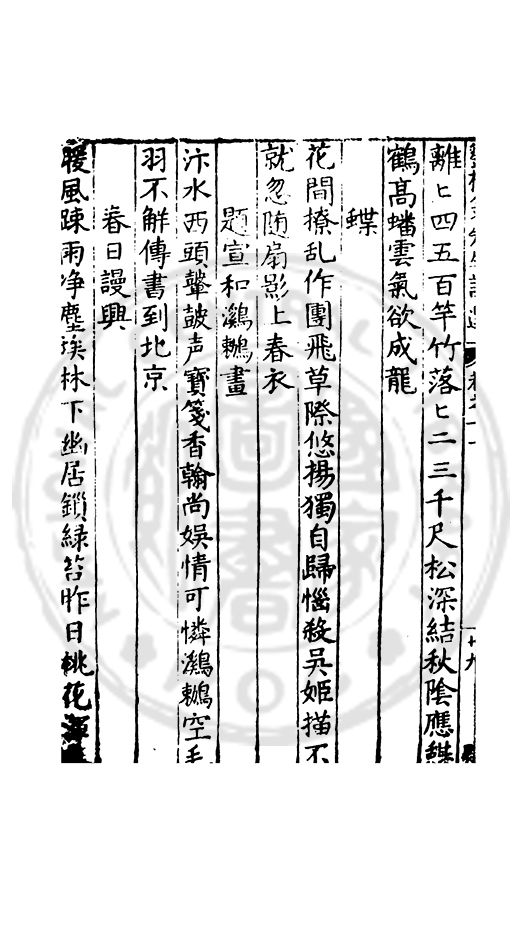 離〻四五百竿竹落〻二三千尺松深結秋陰應
鶴髙蟠雲氣欲成龍
蝶
花間撩乱作團飛草際悠揚獨自歸惱殺吳姬描不
就忽随扇影上春衣
題宣和鸂鶒畫
汴水西頭鼙鼓声寶箋香翰尚娱情可憐鸂鶒空毛
羽不解傳書到北京
春日謾興
暖風踈雨净塵埃林下幽居鎖緑苔昨日桃花